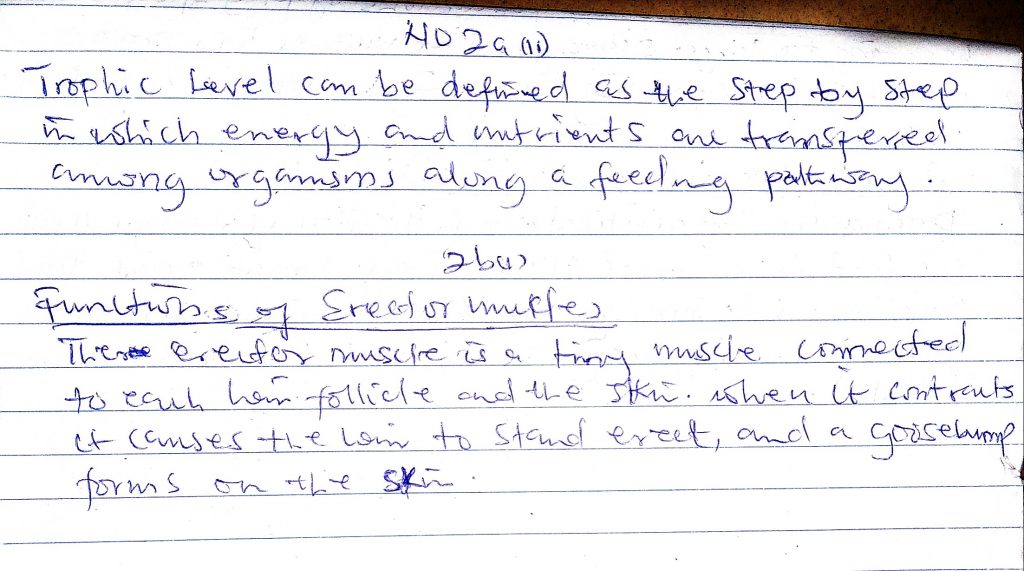 NO 2a (ii)
Trophic Level can be defined as the step by step
in which energy and nutrients are transferred
among organisms along a feeding pathway.
2b(i)
Functions of Erector muscles
The erector muscle is a tiny muscle connected
to each hair follicle and the skin. when it contracts
it causes the hair to stand erect, and a goosebump
forms on the skin.